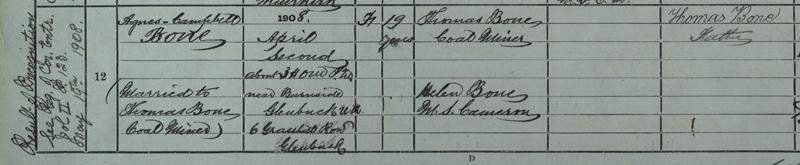 Result of Precognition
See Reg. of Cor. Entr.
Vol II P 123.
May 19th 1908
12
Agnes-Campbell
Bone
(Married to
Thomas Bone
Coal Miner)
1908,
April
Second
about 3 Hour P.M.
near Burnside
Glenbuck
6 Grasshill Row
Glenbuck
F
19
years
Thomas Bone
Coal Miner
Helen Bone
M.S. Cameron
Thomas Bone
Father
D